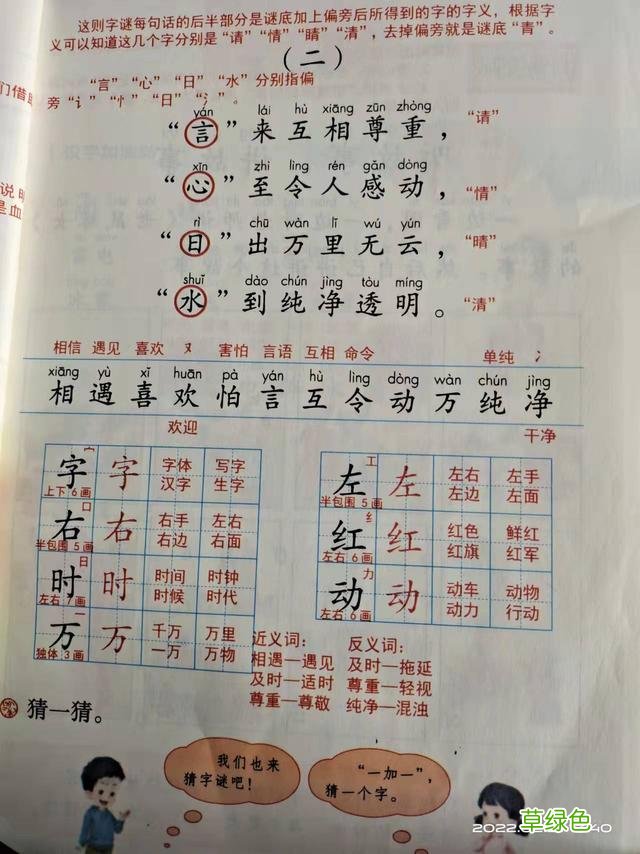 这则字谜每句话的后半部分是谜底加上偏旁后所得到的字的字义，根据字
义可以知道这几个字分别是“请”“情”“晴”“清”，去掉偏旁就是谜底“青”。
（二）
们借
“言”“心”“日”“水”分别指偏
旁“讠”“忄”“日”“氵”。
yán lái hù xiāng zūn zhòng
“言”来互相尊重，“请”
说明
是血
xīn zhì lìng rén gǎn dòng
“心”至令人感动，“情”
rì chū wàn lǐ wú yún
“日”出万里无云，“晴”
shuǐ dào chún jìng tòu míng
“水”到纯净透明。“清”
相信 遇见 喜欢 又 害怕 言语 互相 命令 单纯 冫
xiāng yù xǐ huān pà yán hù lìng dòng wàn chún jìng
相遇喜欢怕言互令动万纯净
欢迎 干净
字 宀 字 字体 写字
上下 6画 汉字 生字
右 口 右 右手 左右
半包围 5画 右边 右面
时 日 时 时间 时钟
左右 7画 时候 时代
万 一 万 千万 万里
独体 3画 一万 万物
左 工 左 左右 左手
半包围 5画 左边 左面
红 纟 红 红色 鲜红
左右 6画 红旗 红军
动 力 动 动车 动物
左右 6画 动力 行动
近义词：
相遇—遇见
及时—适时
尊重—尊敬
反义词：
及时—拖延
尊重—轻视
纯净—混浊
猜一猜。
我们也来
猜字谜吧！
“一加一”，
猜一个字。
草绿色